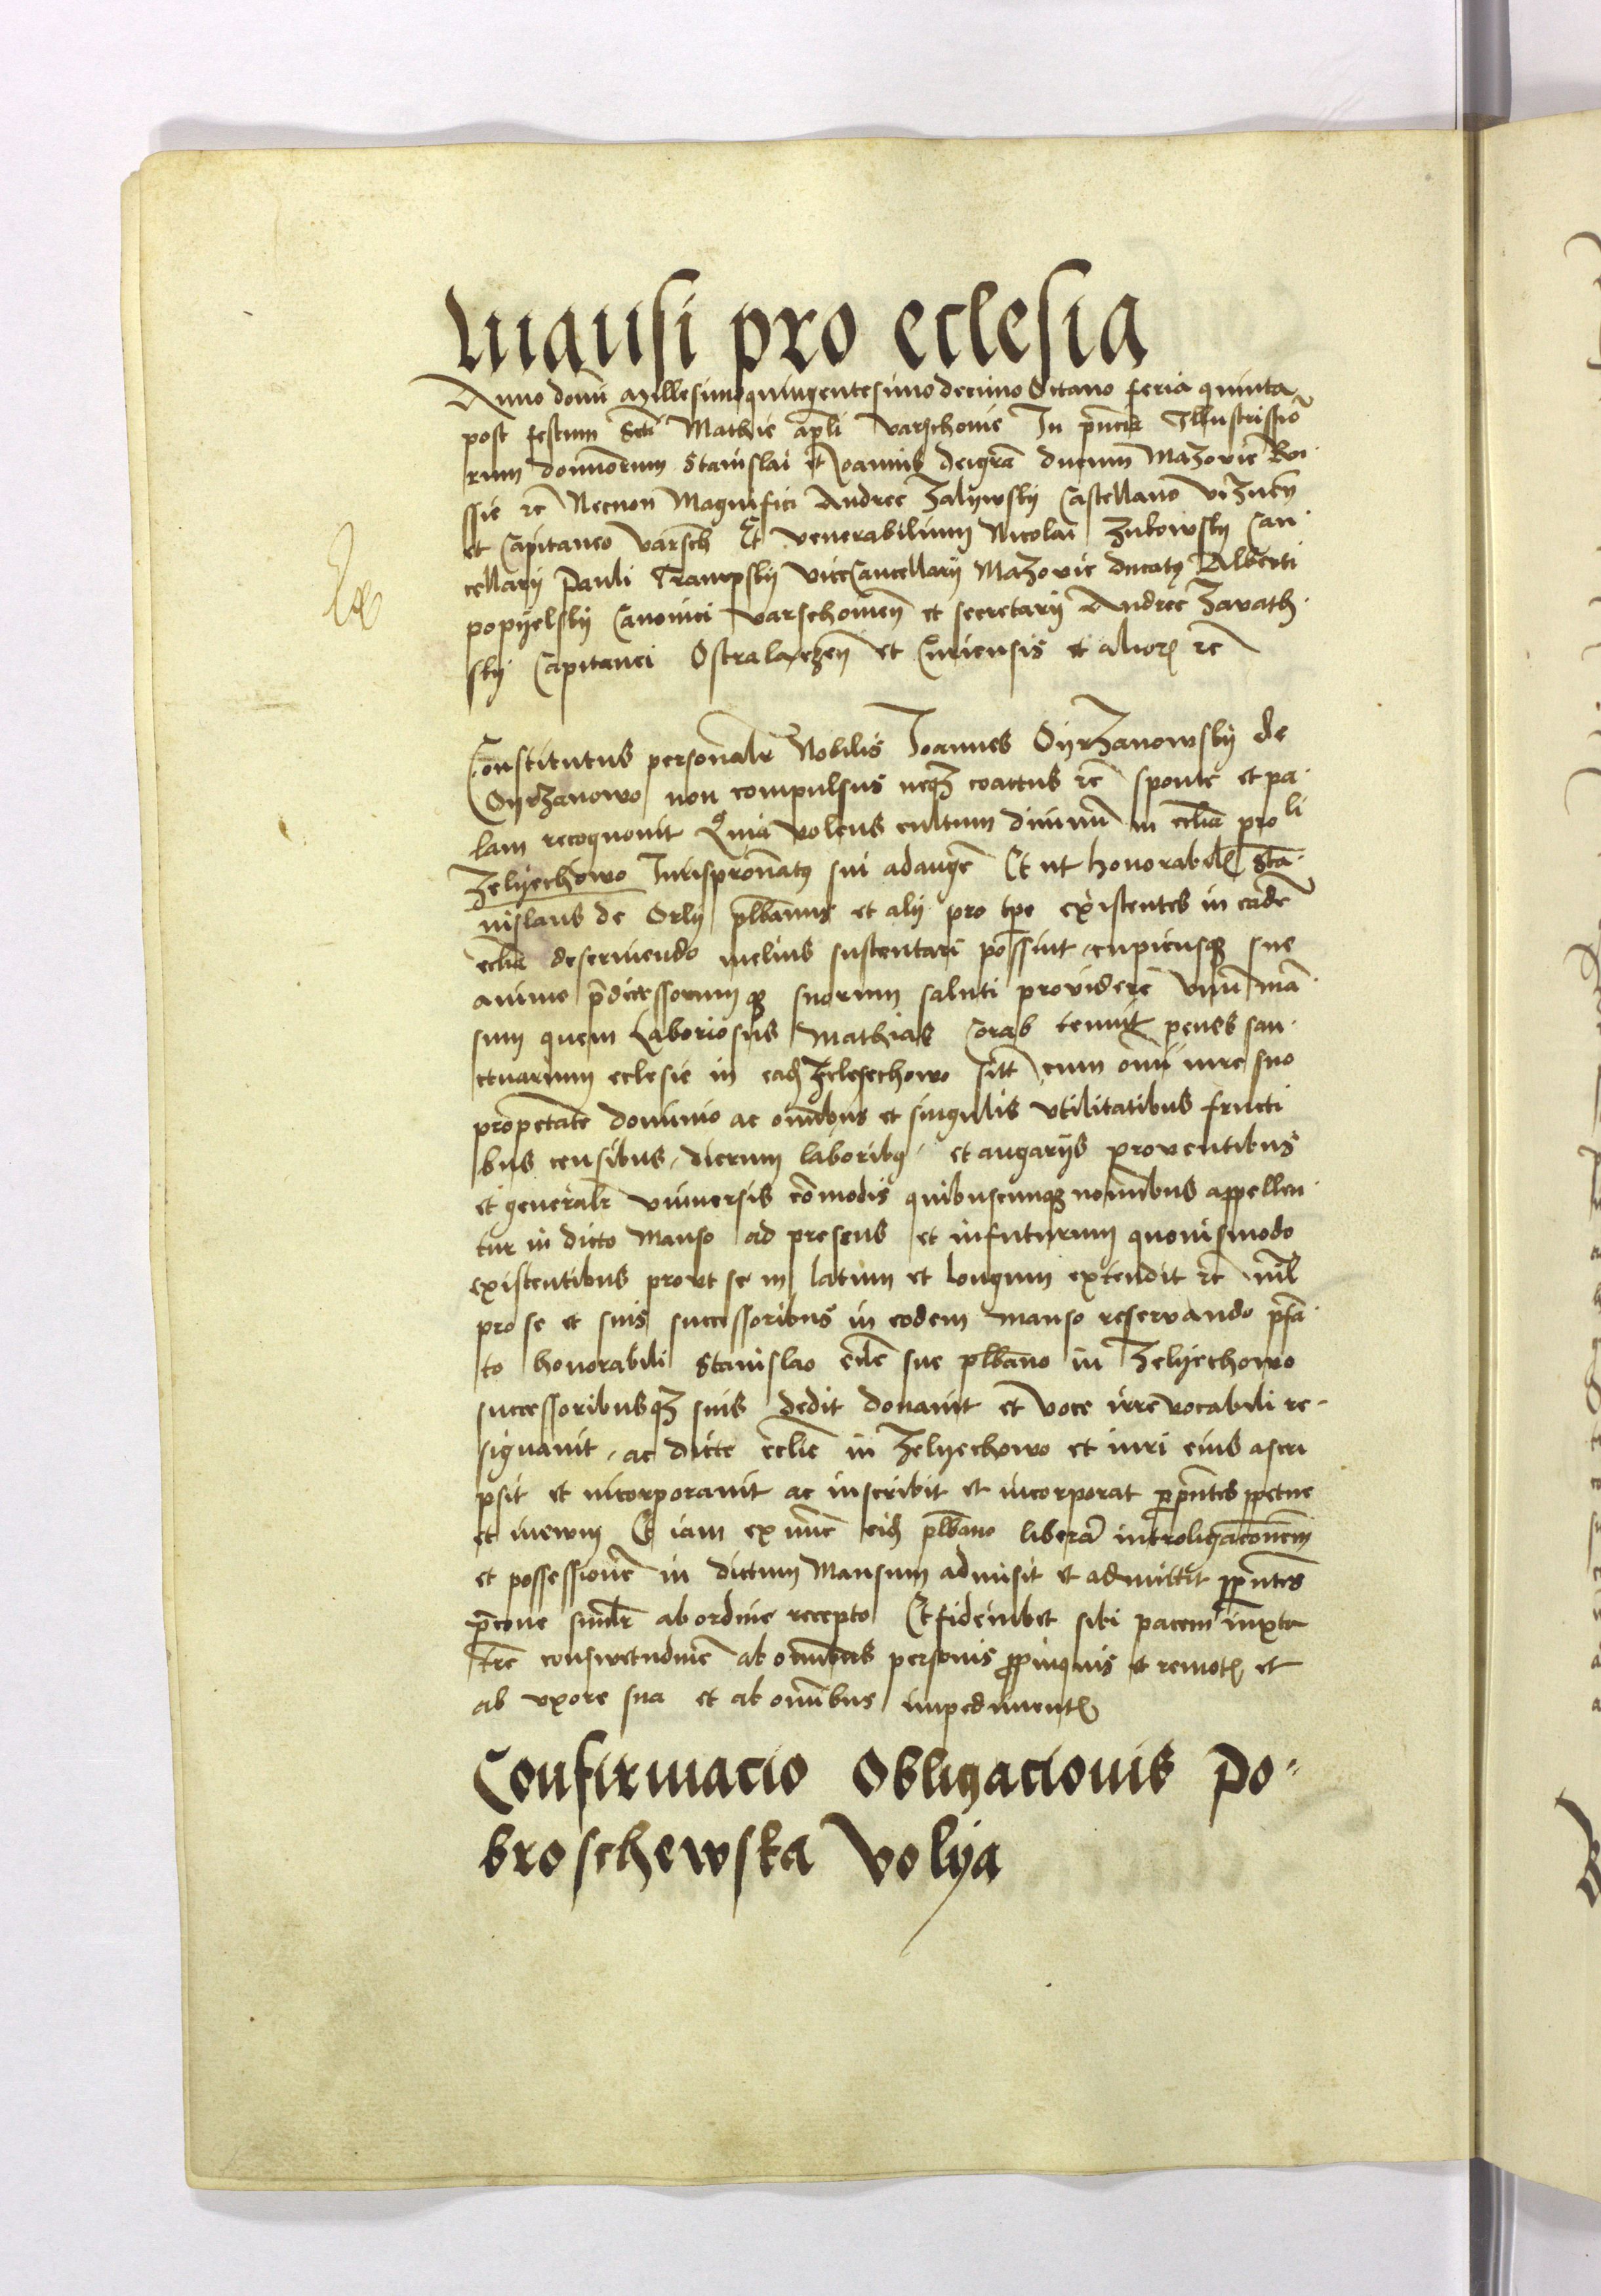 Mansi pro eclesia
Anno domi Millesimo quingentesimo decimo Octavo feria quinta
post festum Scti Mathie apli Varschovie In pncia Illustrissio
rum dominorum Stanislai et Joannis deigra ducum Mazovie Rus
sie rc Necnon Magnifici Andree Zalijwskij Castellano Viznen
et Capitaneo Varsch Et venerabilium Nicolai Zukowskij Can
cellarij Pauli Trampskij ViceCancellarij Mazovie ducatus Alberti
popijelskij Canonici Varschovien et secretarij Andree Zarath
skij Capitanei Ostralazen et Curiensis et alior rc
Constitutus personalr Nobilis Joannes Oyrzanowskij de
Oyrzanowo non compulsus neqz coactus rc sponte et pa
lam recognovit Quia volens cultum divinu in eclia pro li
Zelijechowo Jurispronatus sui adauge Et ut honorabil Sta
nislaus de Orlij plbanus et alij pro tpe existentes in eade
eclia deserviendo melius sustentari possint cupiensqz sue
anime pdicessorumqz suorum saluti providere Unu man
sum quem Laboriosus Mathias Corab tenuit penes san
ctuarium eclesie in ead Zelesechowo sitt cum omi iure suo
propetate dominio ac omibus et singulis utilitatibus fructi
bus censibus dierum laboribus et angarijs proventibus
et generalr universis comodis quibuscumqz nominibus appellen
tur in dicto Manso ad presens et infuturum quovismodo
existentibus prout se in latum et longum extendit rc nil
pro se et suis successoribus in eodem manso reservando pfa
to honorabili Stanislao eclie sue plbano in Zelijechowo
successoribusqz suis dedit donavit et voce irrevocabili re
signavit ac dicte eclie in Zelijechowo et iuri eius ascri
psit et incorporavit ac inscribit et incorporat pprntes ppetue
et inewm Et iam ex nunc eid plbano libera introligaconem
et possessione in dictum Mansum admisit et admittit pprntes
pcone similr ab ordine recepto Et fideiubet sibi pacem iuxta
tre consuetudine ab omibus personis ppinquis et remot et
ab uxore sua et ab omibus impediment
Confirmacio Obligacionis Po
broschewska Volija